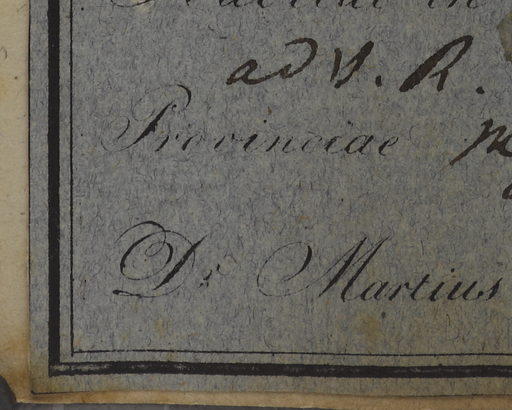 in
ads. R.
Provinciae
Dr Martius